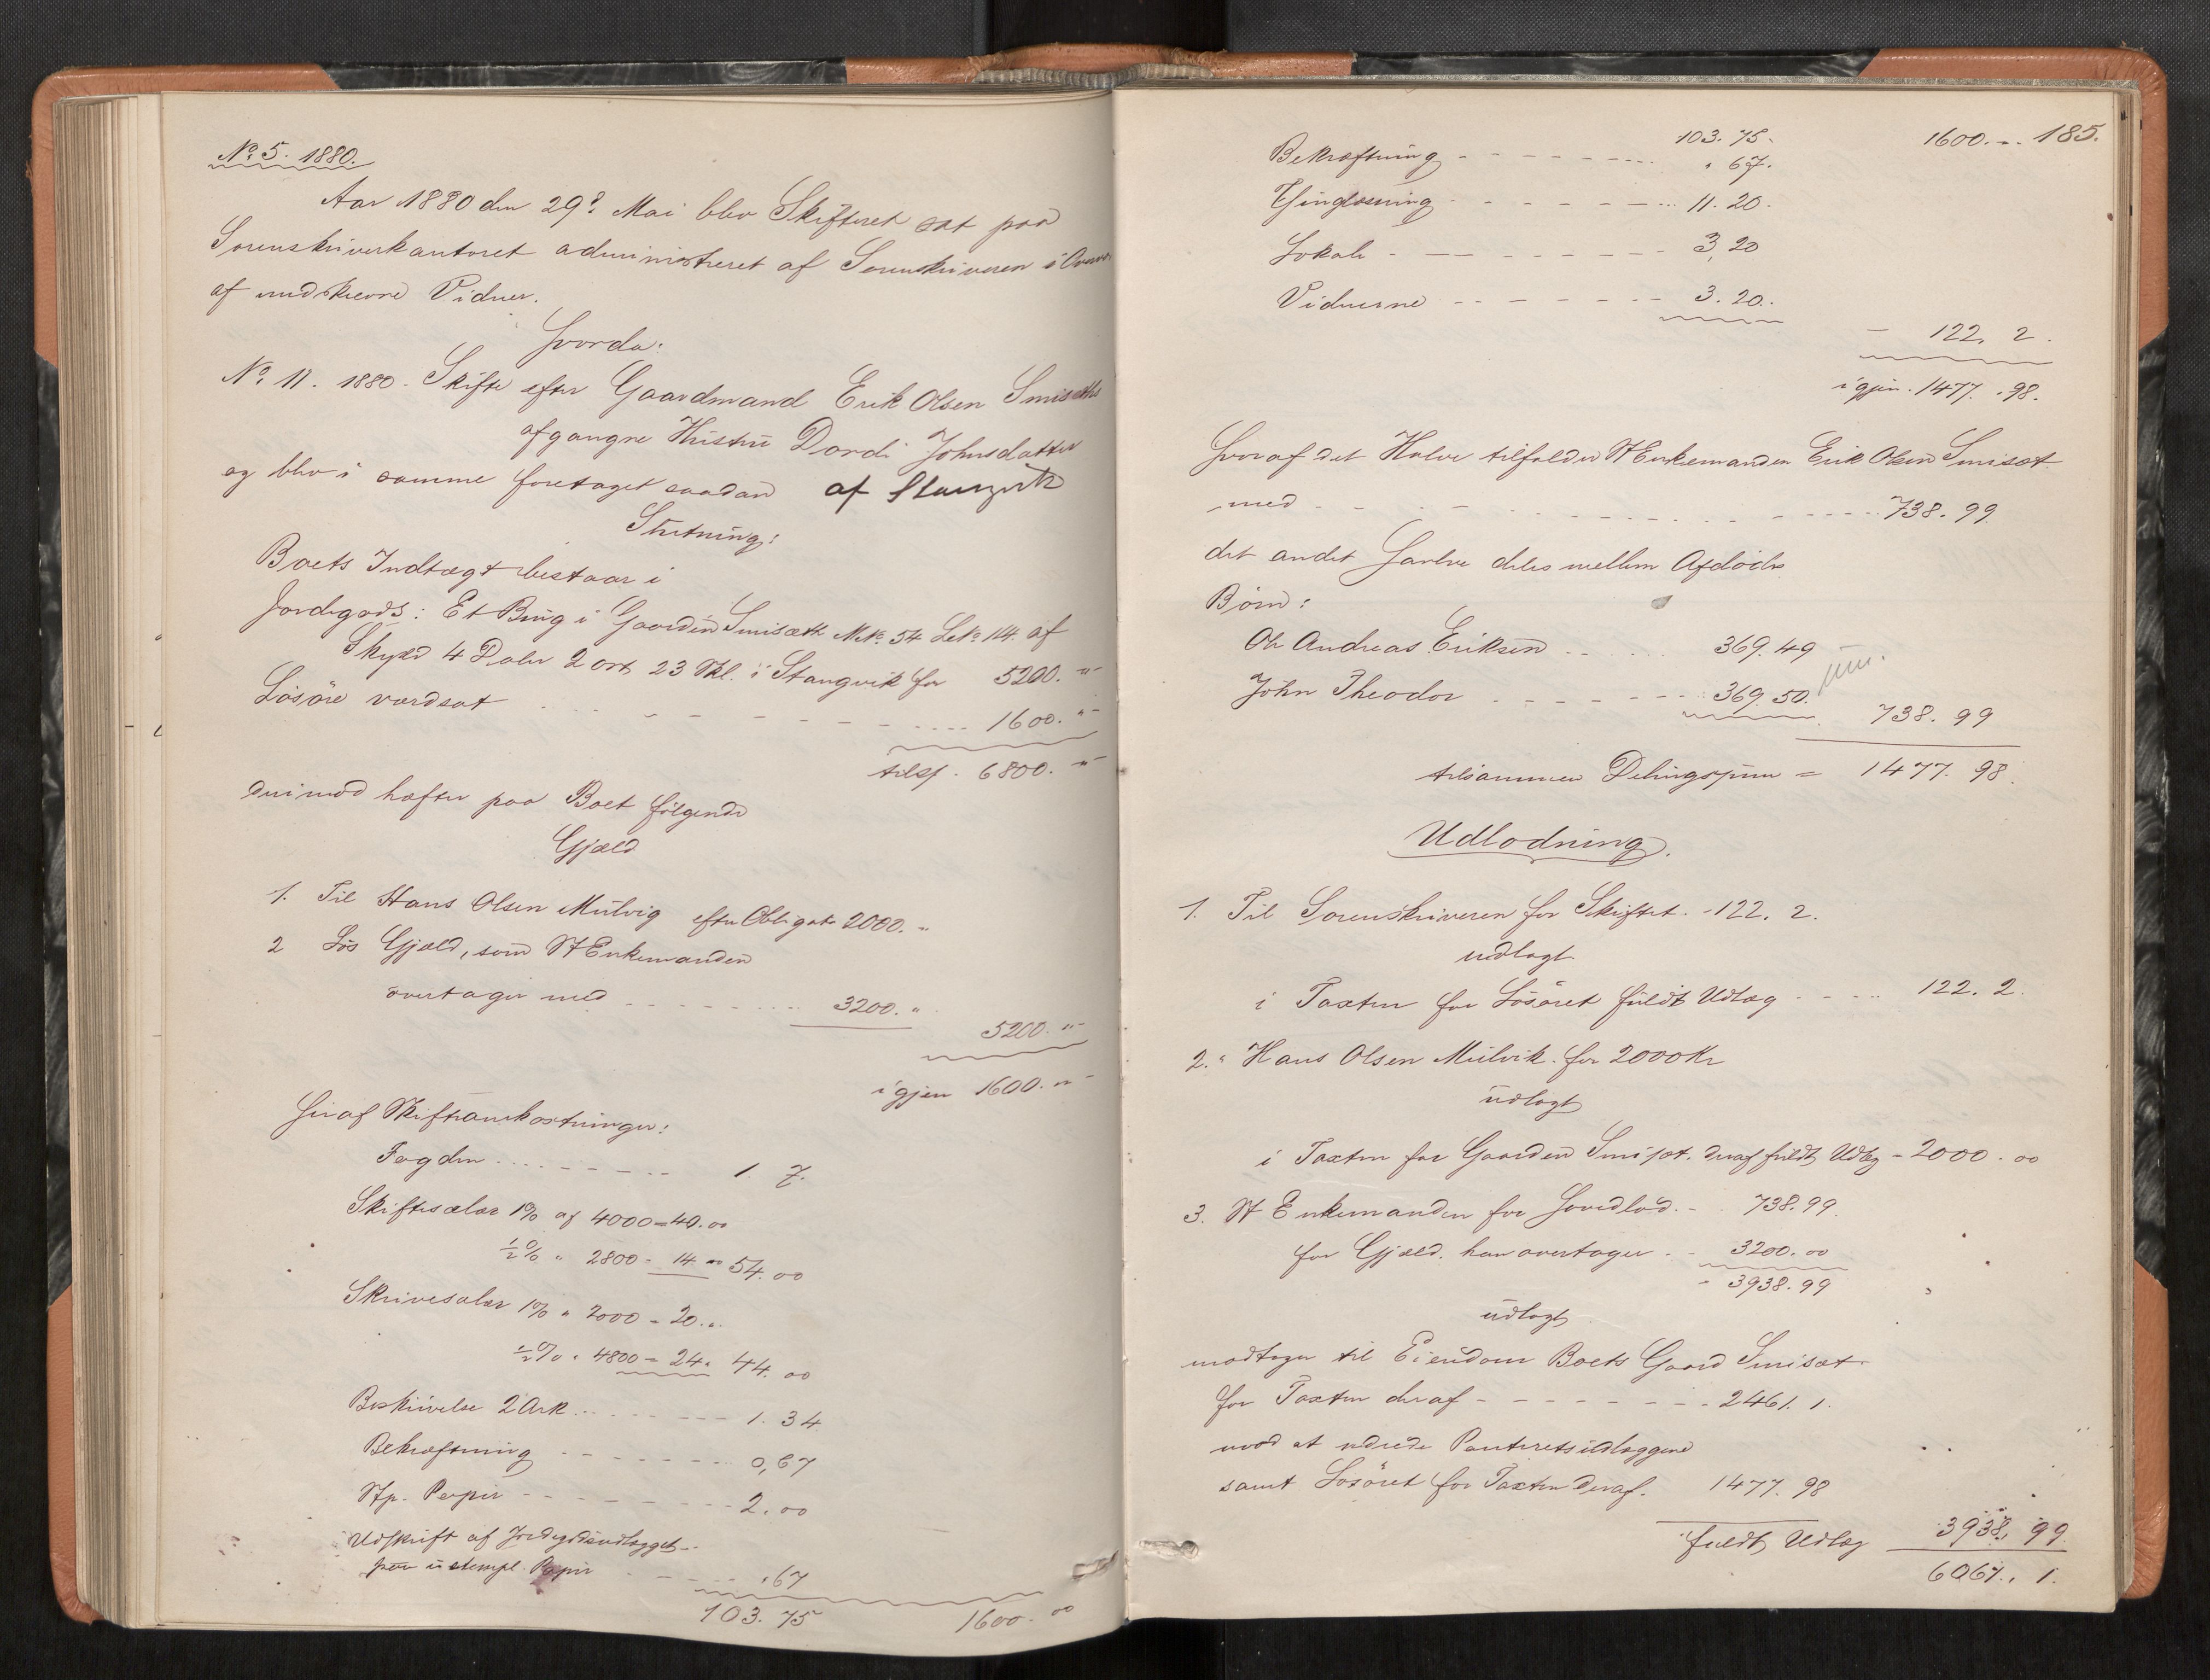 No 5. 1880.
Aar 1880 den 29de Mai blev Skifteret sat paa
Sorenskriverkontoret administreret af Sorenskriveren i Overvær
af undskrevne Vidner.
Hvorda:
No 11. 1880. Skifte efter Gaardmand Erik Olsen Smisæths
afgangne Hustru Dordi Johnsdatter
og blev i samme foretaget saadan af Stangvik
Slutning:
Boets Indtægt bestaar i
Jordegods: Et Brug i Gaarden Smisæth M.No 54 L.No 114. af
Skyld 4 Daler 2 ort 23 Skl. i Stangvik for 5200. "
Løsøre værdsat 1600. "
tils. 6800. "
derimod hæfter paa Boet følgende
Gjæld
1. Til Hans Olsen Mulvig efter Obligat. 2000. "
2 Løs Gjæld, som StEnkemanden
overtager med 3200. "
5200. "
igjen 1600. "
Heraf Skifteomkostninger:
Fogden 1. 7.
Skiftesalær 1% af 4000 = 40.00
½% " 2800 - 14. " 54.00
Skrivesalær 1% " 2000 = 20. "
½% " 4800 = 24 " 44.00
Beskrivelse 2 Ark 1. 34
Bekræftning 0,67
Stp. Papir 2.00
Udskrift af Jordegodsudlægget
paa ustempl. Papir " 67
103. 75 1600. 00
103. 75. 1600. 185.
Bekræftning " 67.
Thinglæsning 11. 20.
Lokale 3,20
Vidnerne 3. 20.
122. 2.
igjen. 1477. 98.
Hvoraf det Halve tilfalder StEnkemanden Erik Olsen Smisæt
med 738. 99
det andet Halve deles mellem Afdødes
Børn:
Ole Andreas Eriksen 369. 49
John Theodor 369. 50. um.
738. 99
tilsammen Delingssum = 1477. 98.
Udlodning.
1. Til Sorenskriveren for Skiftet. - 122. 2.
udlagt
i Taxten for Løsøret fuldt Udlæg 122. 2.
2. " Hans Olsen Mulvik for 2000 Kr
udlagt
i Taxten for Gaarden Smisæt. deraf fuldt Udlæg - 2000. 00
3. StEnkemanden for Hovedlod. - 738. 99.
for Gjæld. han overtager 3200. 00
3938. 99
udlagt
modtager til Eiendom Boets Gaard Smisæt
for Taxten deraf 2461. 1.
mod at udrede Panteretsudlæggene
samt Løsøret for Taxten deraf. 1477. 98
fuldt Udlæg 3938. 99.
6061. 1.